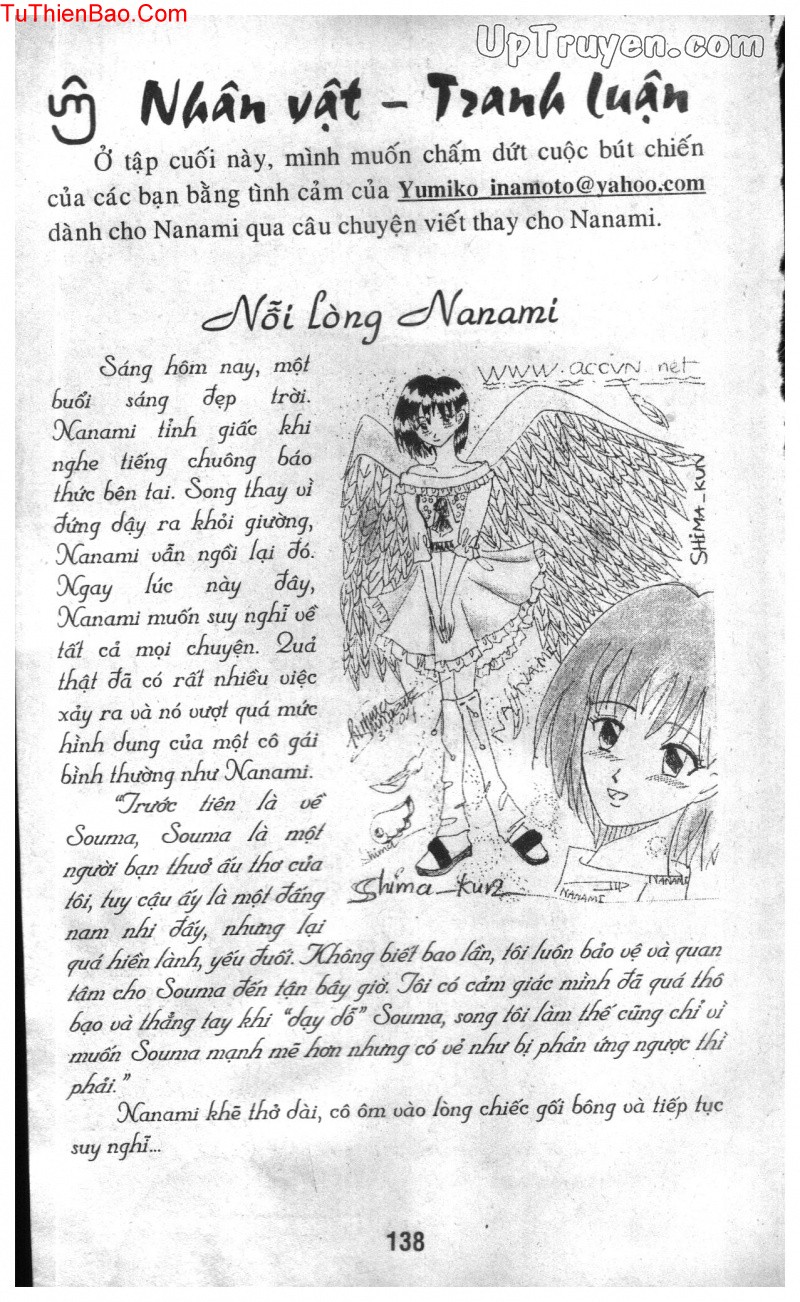 TuThienBao.Com
UpTruyen.com
Nhân vật – Tranh luận
Ở tập cuối này, mình muốn chấm dứt cuộc bút chiến
của các bạn bằng tình cảm của Yumiko_inamoto@yahoo.com
dành cho Nanami qua câu chuyện viết thay cho Nanami.
Nỗi lòng Nanami
Sáng hôm nay, một
buổi sáng đẹp trời.
Nanami tỉnh giấc khi
nghe tiếng chuông báo
thức bên tai. Song thay vì
đứng dậy ra khỏi giường,
Nanami vẫn ngồi lại đó.
Ngay lúc này đây,
Nanami muốn suy nghĩ về
tất cả mọi chuyện. Quả
thật đã có rất nhiều việc
xảy ra và nó vượt quá mức
hình dung của một cô gái
bình thường như Nanami.
"Trước tiên là về
Souma, Souma là một
người bạn thuở ấu thơ của
tôi, tuy cậu ấy là một đấng
nam nhi đấy, nhưng lại
quá hiền lành, yếu đuối. Không biết bao lần, tôi luôn bảo vệ và quan
tâm cho Souma đến tận bây giờ. Tôi có cảm giác mình đã quá thô
bạo và thẳng tay khi "dạy dỗ" Souma, song tôi làm thế cũng chỉ vì
muốn Souma mạnh mẽ hơn nhưng có vẻ như bị phản ứng ngược thì
phải."
Nanami khẽ thở dài, cô ôm vào lòng chiếc gối bông và tiếp tục
suy nghĩ...
www.accvn.net
SHIMA_KUN
NANAMI
3.8.04
Shima
Shima_kun
NANAMI
NANAMI
138